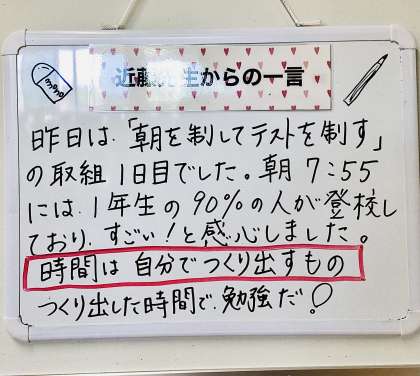 近藤先生からの一言
mono
昨日は、「朝を制してテストを制す」
の取組1日目でした。朝7:55
には、1年生の90%の人が登校し
ており、すごい!と感心しました。
時間は自分でつくり出すもの
つくり出した時間で、勉強だ!